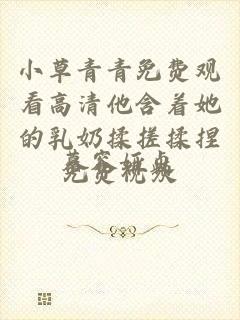 小草青青免费观
看高清他含着她
的乳奶揉搓揉捏
免费视频